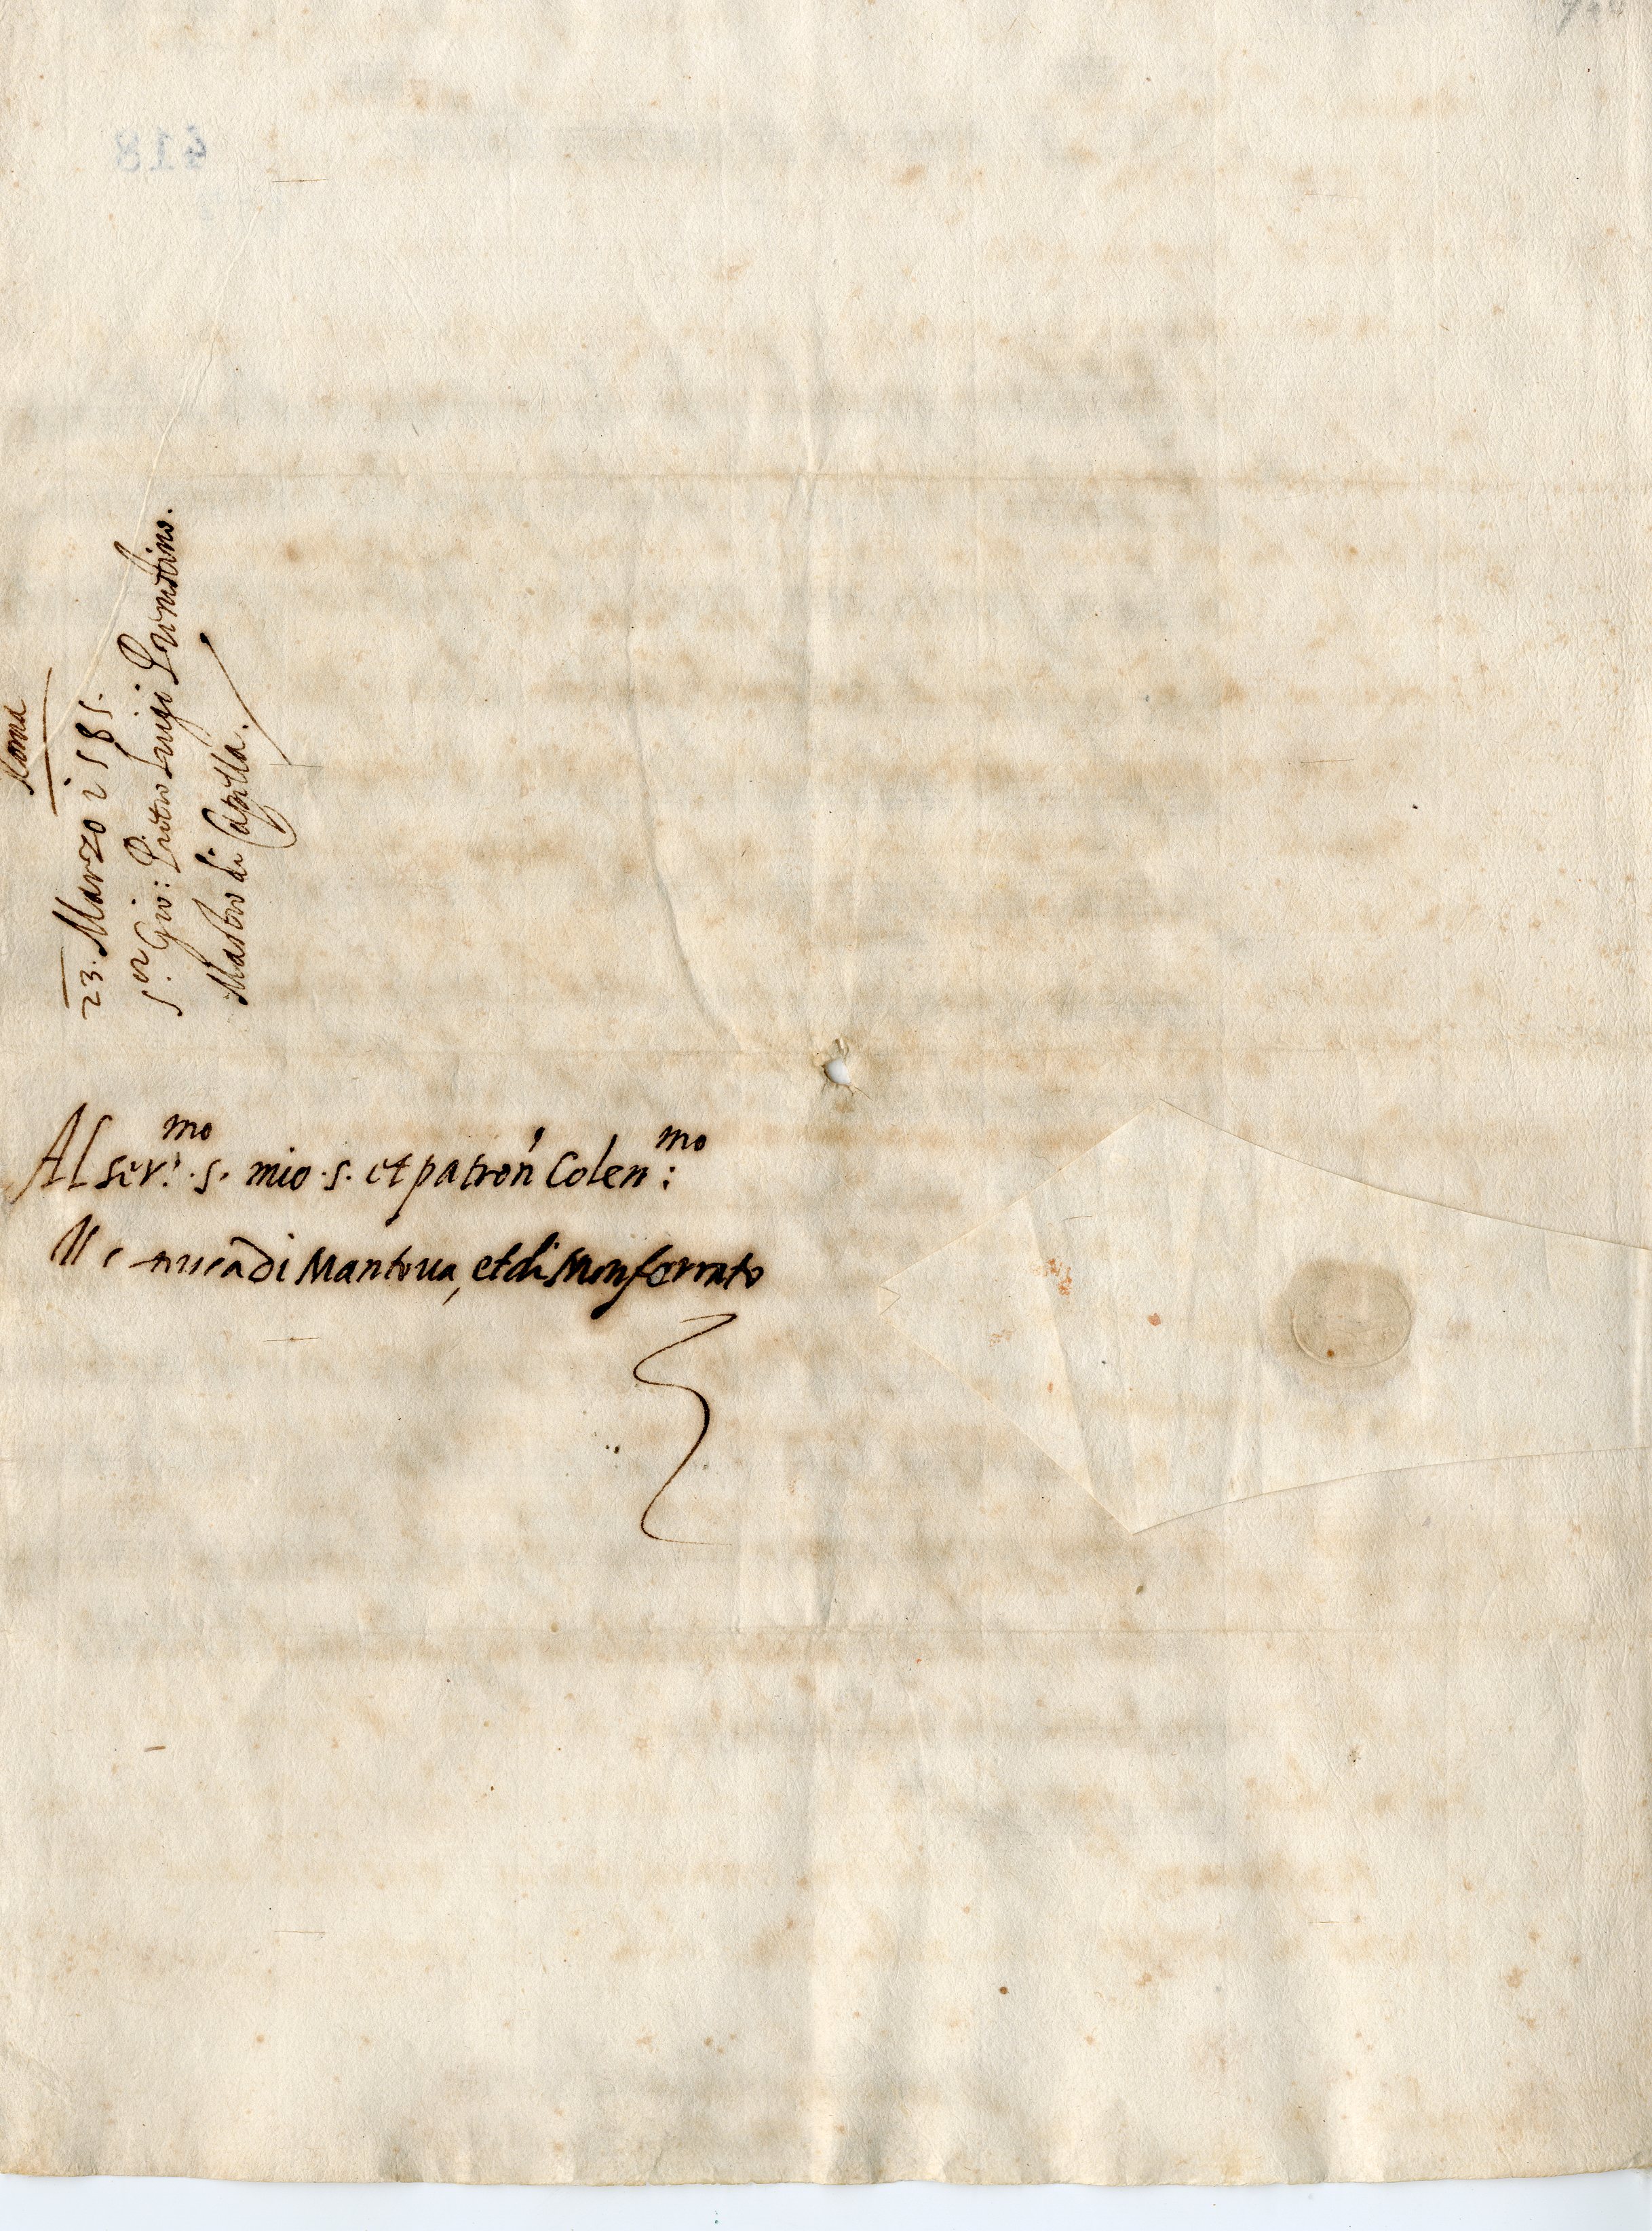 Roma
23. Marzo 1585.
S.or Gio: Pietro Luigi Prenestino.
Mastro di Capella.
Al ser.mo s. mio s. et patron Colen:mo
di Mantova, et di Monferrato
418